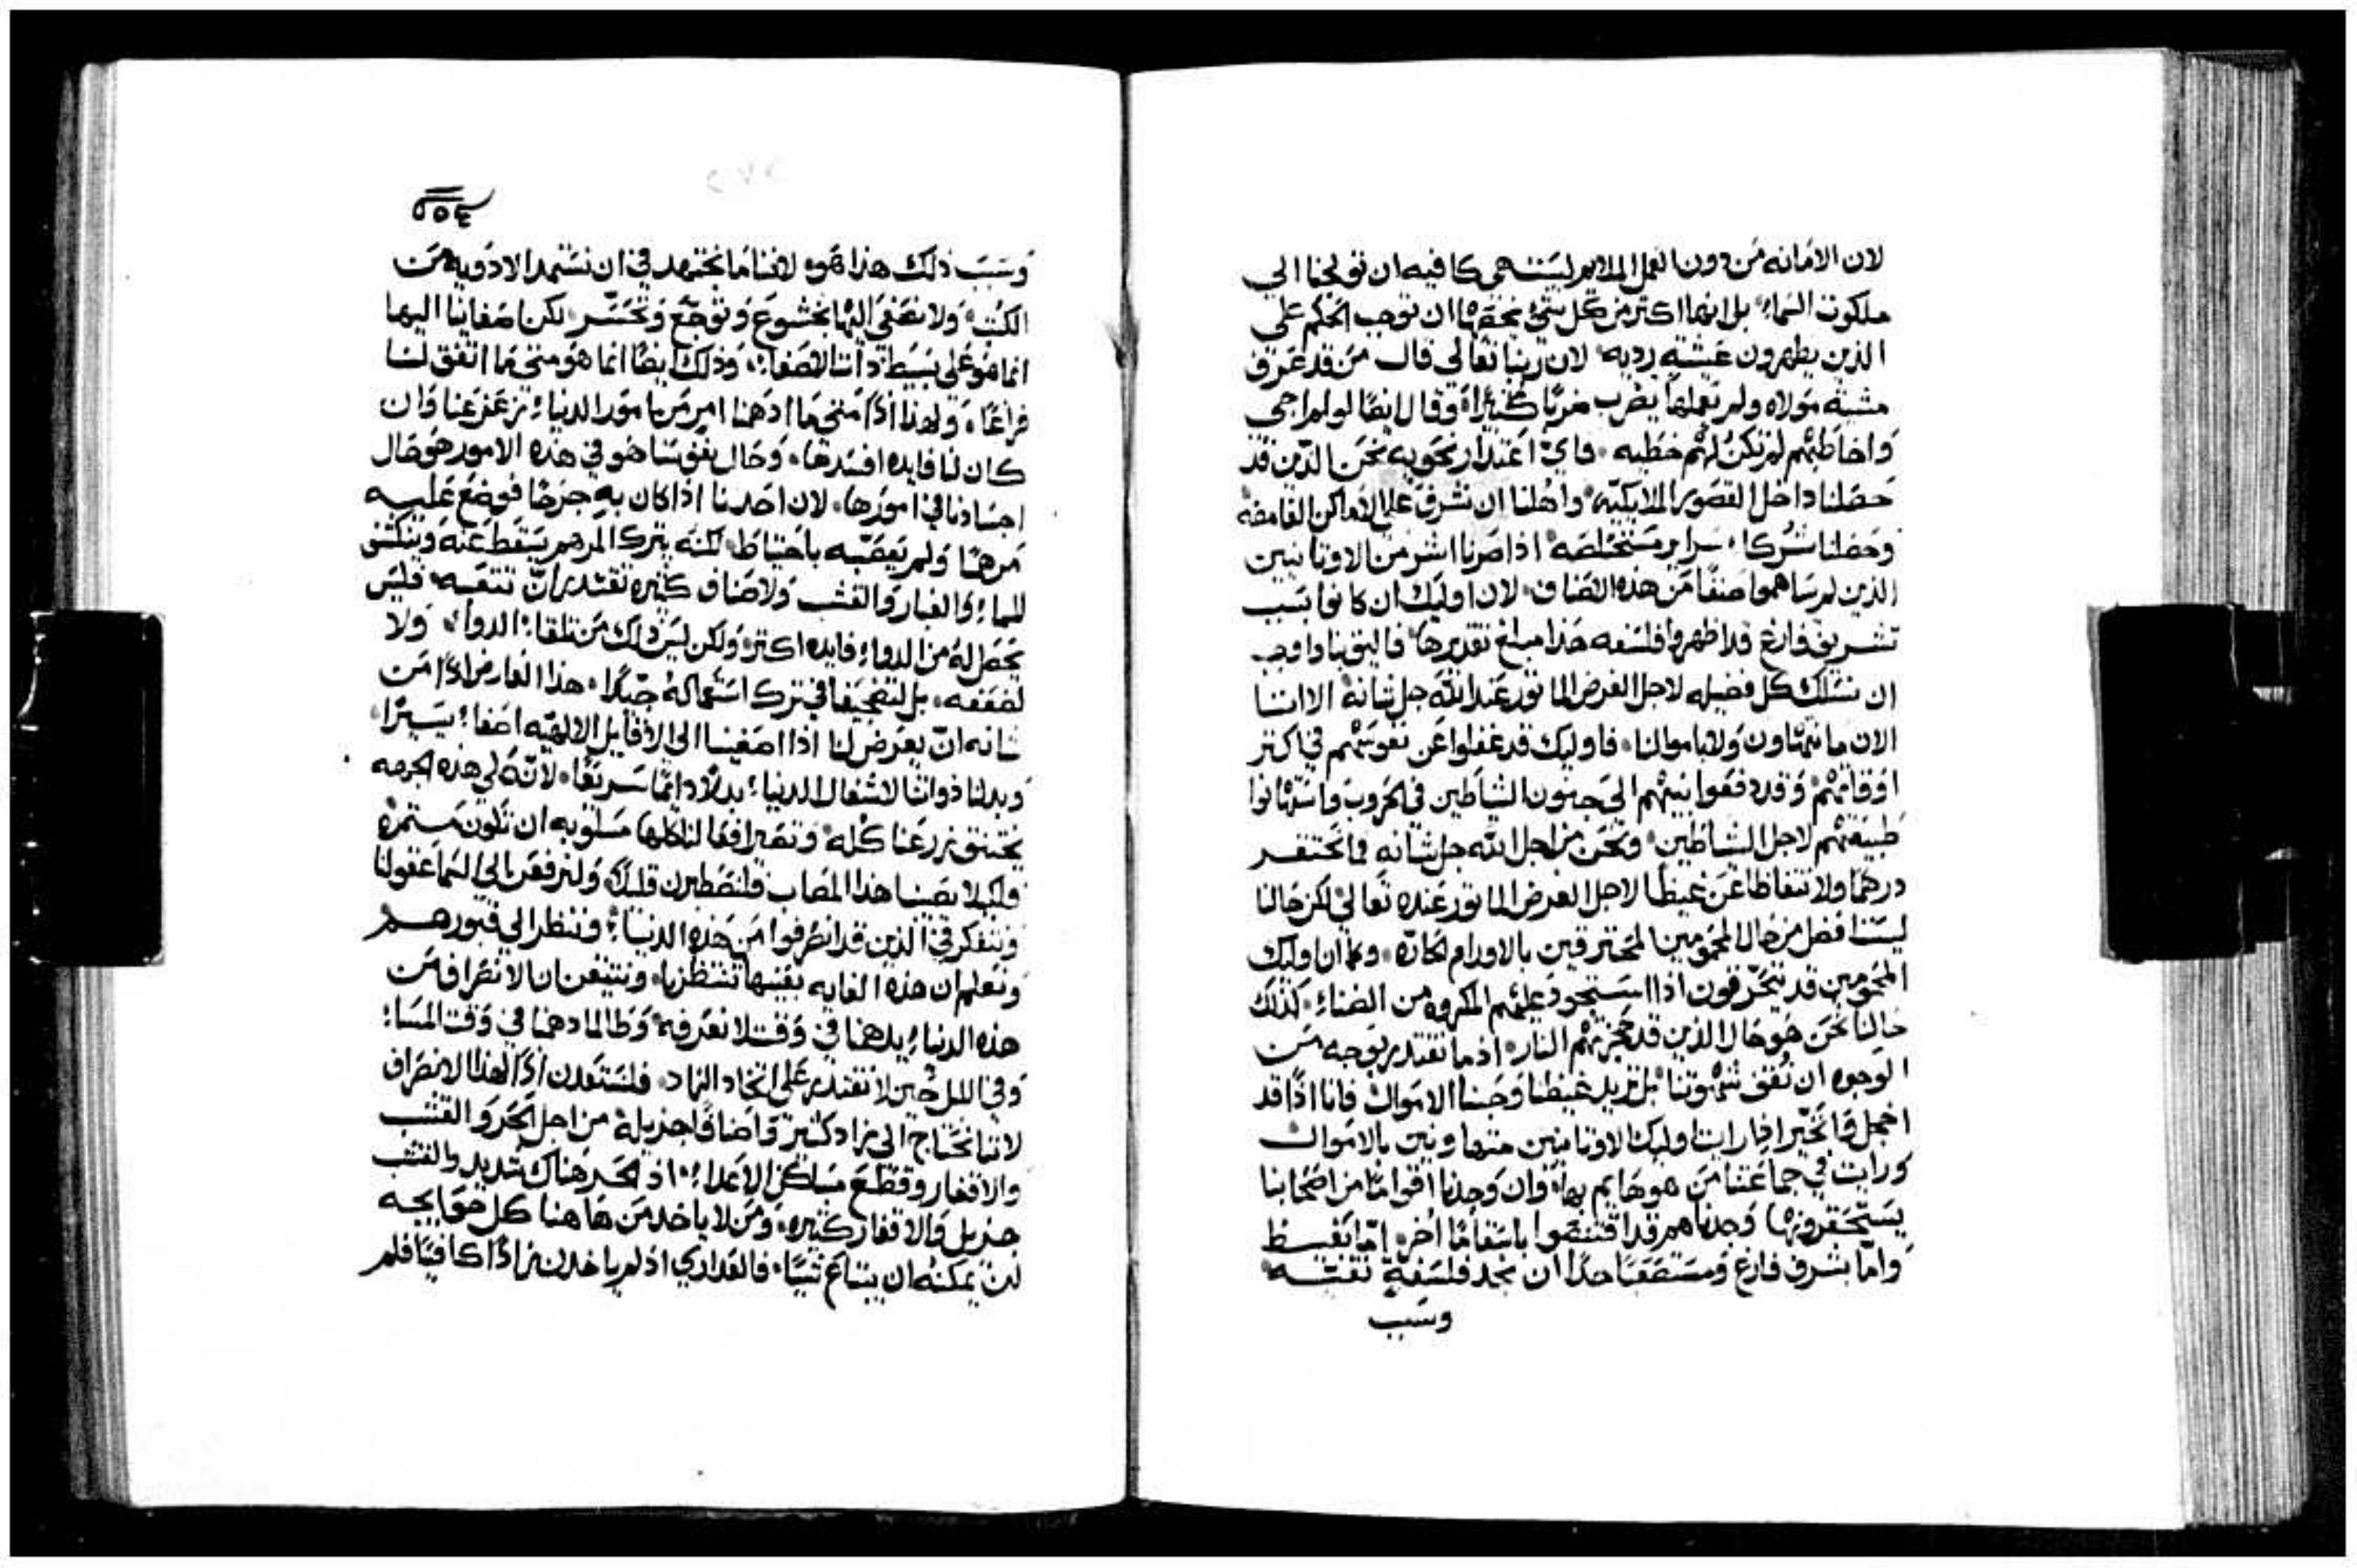 لان الامانه من دون العمل الملايم ليست هي كافيه ان تولجنا الي
ملكوت السماء بل انها اكتر من كل شئ نحقها ان توجب الحكم علي
الذين يظهرون عيشته رديه لان ربنا تعالي قال من قد عرف
مشية مولاه ولم يعملها يضرب ضربًا كثيرًا وقال ايضًا لو لم اجي
واخاطبهم لم تكن لهم خطيه فاي اعتدار نحويه نحن الذين قد
حصلنا داخل القصور الملايكيه واهلنا ان نشرف علي الاماكن الغامضه
وحصلنا شركاء سراير مستخلصه اذا صرنا اشر من الاوتانيين
الذين لم يساهموا صنفًا من هذه الاصناف لان اوليك ان كانوا بسبب
تشريف فارغ قد اظهروا فلسفه هذا مبلغ تقديرها فاليق بنا واوجب
ان نسلك كل فضيله لاجل الغرض الماتور عند الله جل شانه الا اننا
الان ما نتهاون ولا باموالنا فاوليك قد غفلوا عن نفوسهم في اكتر
اوقاتهم وقد دفعوا بنيهم الي جنون الشياطين في الحروب واستهانوا
طبيعتهم لاجل الشياطين ونحن من اجل الله جل شانه ما نحتقر
درهمًا ولا نتغاظا عن غيظًا لاجل الغرض الماتور عنده تعالي لكن حالنا
ليست افضل من حال المحمومين المحترقين بالاورام الحاره وكما ان اوليك
المحمومين قد يتحرقون اذا استحود عليهم المكروه من الضناء كذلك
حالنا نحن هو حال الذين قد حجزتهم النار اذ ما نقتدر بوجه من
الوجوه ان نقف شهوتنا بل نزيد غيظنا وحبنا الاموال فانا اذًا قد
اخجل واتحير اذا رايت اوليك الاوتانيين متهاونين بالاموال
ورايت في جماعتنا من هو هايم بها وان وجدنا اقوامًا من اصحابنا
يستحقرونها وجدناهم قد اقتنصوا باسقامًا اخر اما بغيظ
واما بشرف فارغ ومستصعبًا جدًا ان نجد فلسفة نقيه
وسبب
وسبب ذلك هذا هو لاننا ما نجتهد في ان نستمد الادويه من
الكتب ولا نصغي اليها بخشوع وتوجع وتحسر لكن اصغاينا اليها
انما هو علي بسيط دات الاصغاء وذلك ايضًا انما هو متي ما اتفق لنا
فراغًا ولهذا اذًا متي ما ادهمنا امر من امور الدنيا تزعزعنا وان
كان لنا فايده افسدها وحال نفوسنا هو في هذه الامور هو حال
اجسادنا في امورها لان احدنا اذا كان به جرحًا فوضع عليه
مرهمًا ولم يعصبه باحتياط لكنه يترك المرهم يسقط عنه وينكشف
للماء والغبار والقشب ولاصناف كثيره تقتدر ان تتعبه فليس
يحصل له من الدواء فايده اكتر ولكن ليس ذلك من تلقاء الدواء ولا
لضعفه بل لتضجيعنا في ترك استعماله جيدًا هذا العارض اذًا من
شانه ان يعرض لنا اذا اصغينا الي الاقاويل الالهيه اصغاء يسيرًا
وبدلنا ذواتنا لاشغال الدنيا بدلًا دايمًا سريعًا لانه لهذه الجهه
يختنق زرعنا كله وتصير افعالنا كلها مسلوبه ان تكون مستمره
فلكيلا يصيبنا هذا المصاب فلنصطبرن قليلًا ولنرفعن الي السما عقولنا
ونتفكر في الذين قد انصرفوا من هذه الدنيا وننظر الي قبورهم
ونعلم ان هذه الغايه بعينها تنتظرنا ونتيقن ان الانصراف من
هذه الدنيا يدهمنا في وقت لا نعرفه وطالما دهمنا في وقت المساء
وفي الليل حين لا نقتدر علي اتخاد الزاد فلنستعدن اذًا لهذا الانصراف
لاننا نحتاج الي زاد كثير واصنافًا جزيله من اجل الحر والقشب
والاقفار وقطع مساكن الاعداء اذ الحر هناك شديد والقشب
جزيل والاقفار كثيره ومن لا ياخد من هاهنا كل حوايجه
لن يمكنه ان يبتاع شيئًا فالعداري اذ لم ياخدن زادًا كافيًا فلم